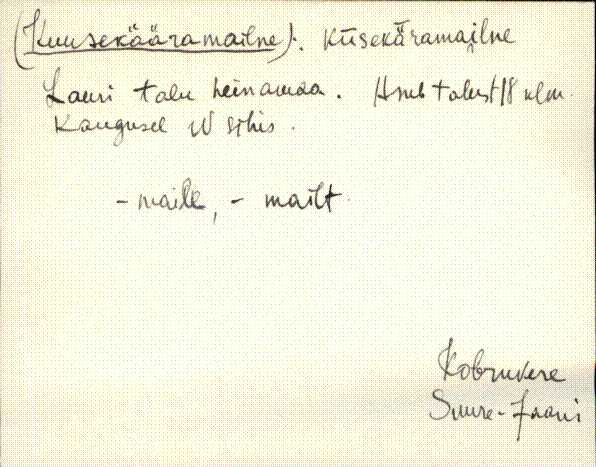 (Kuusekääramailne). Küsekäramailne
Lauri talu heinamaa. talust 18 klm.
Kaugusel W sihis.
- maile, - mailt.
Kobruvere
Suure-Jaani